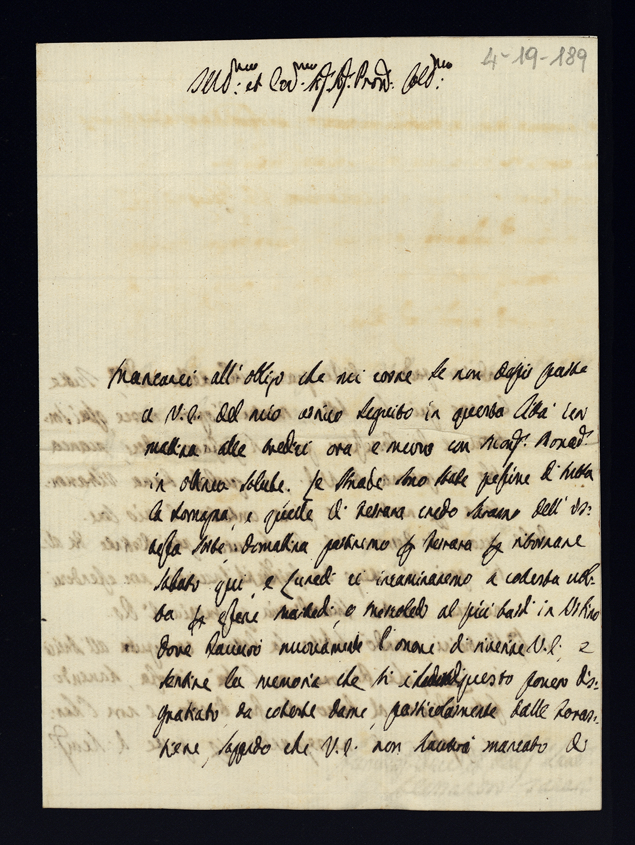 4-19-189
Ill.mo et Ecc.mo Sig. Sig. Pron. Col.mo
Mancarei all'obligo che mi corre se non dassi parte
a V.E. del mio arrivo seguito in questa Città ier
mattina alle tredici ora e mezza con Mons.
in ottima salute. le strade sono state pessime di tutta
la Romagna, e quelle di Ferrara credo sarano dell'is-
tessa sorte. domattina partiremo per Ferrara per ritornare
sabato qui, e Lunedì ci incaminaremo a codesta vol-
ta per essere martedì, o mercoledì al più tardi in
dove haverò nuovamente l'onore di riverire V.E., e
sentire la memoria che si di questo povero dis-
gratiato da coteste dame, particolarmente dalle foras-
tiere, sapendo che V.E. non haverà mancato di